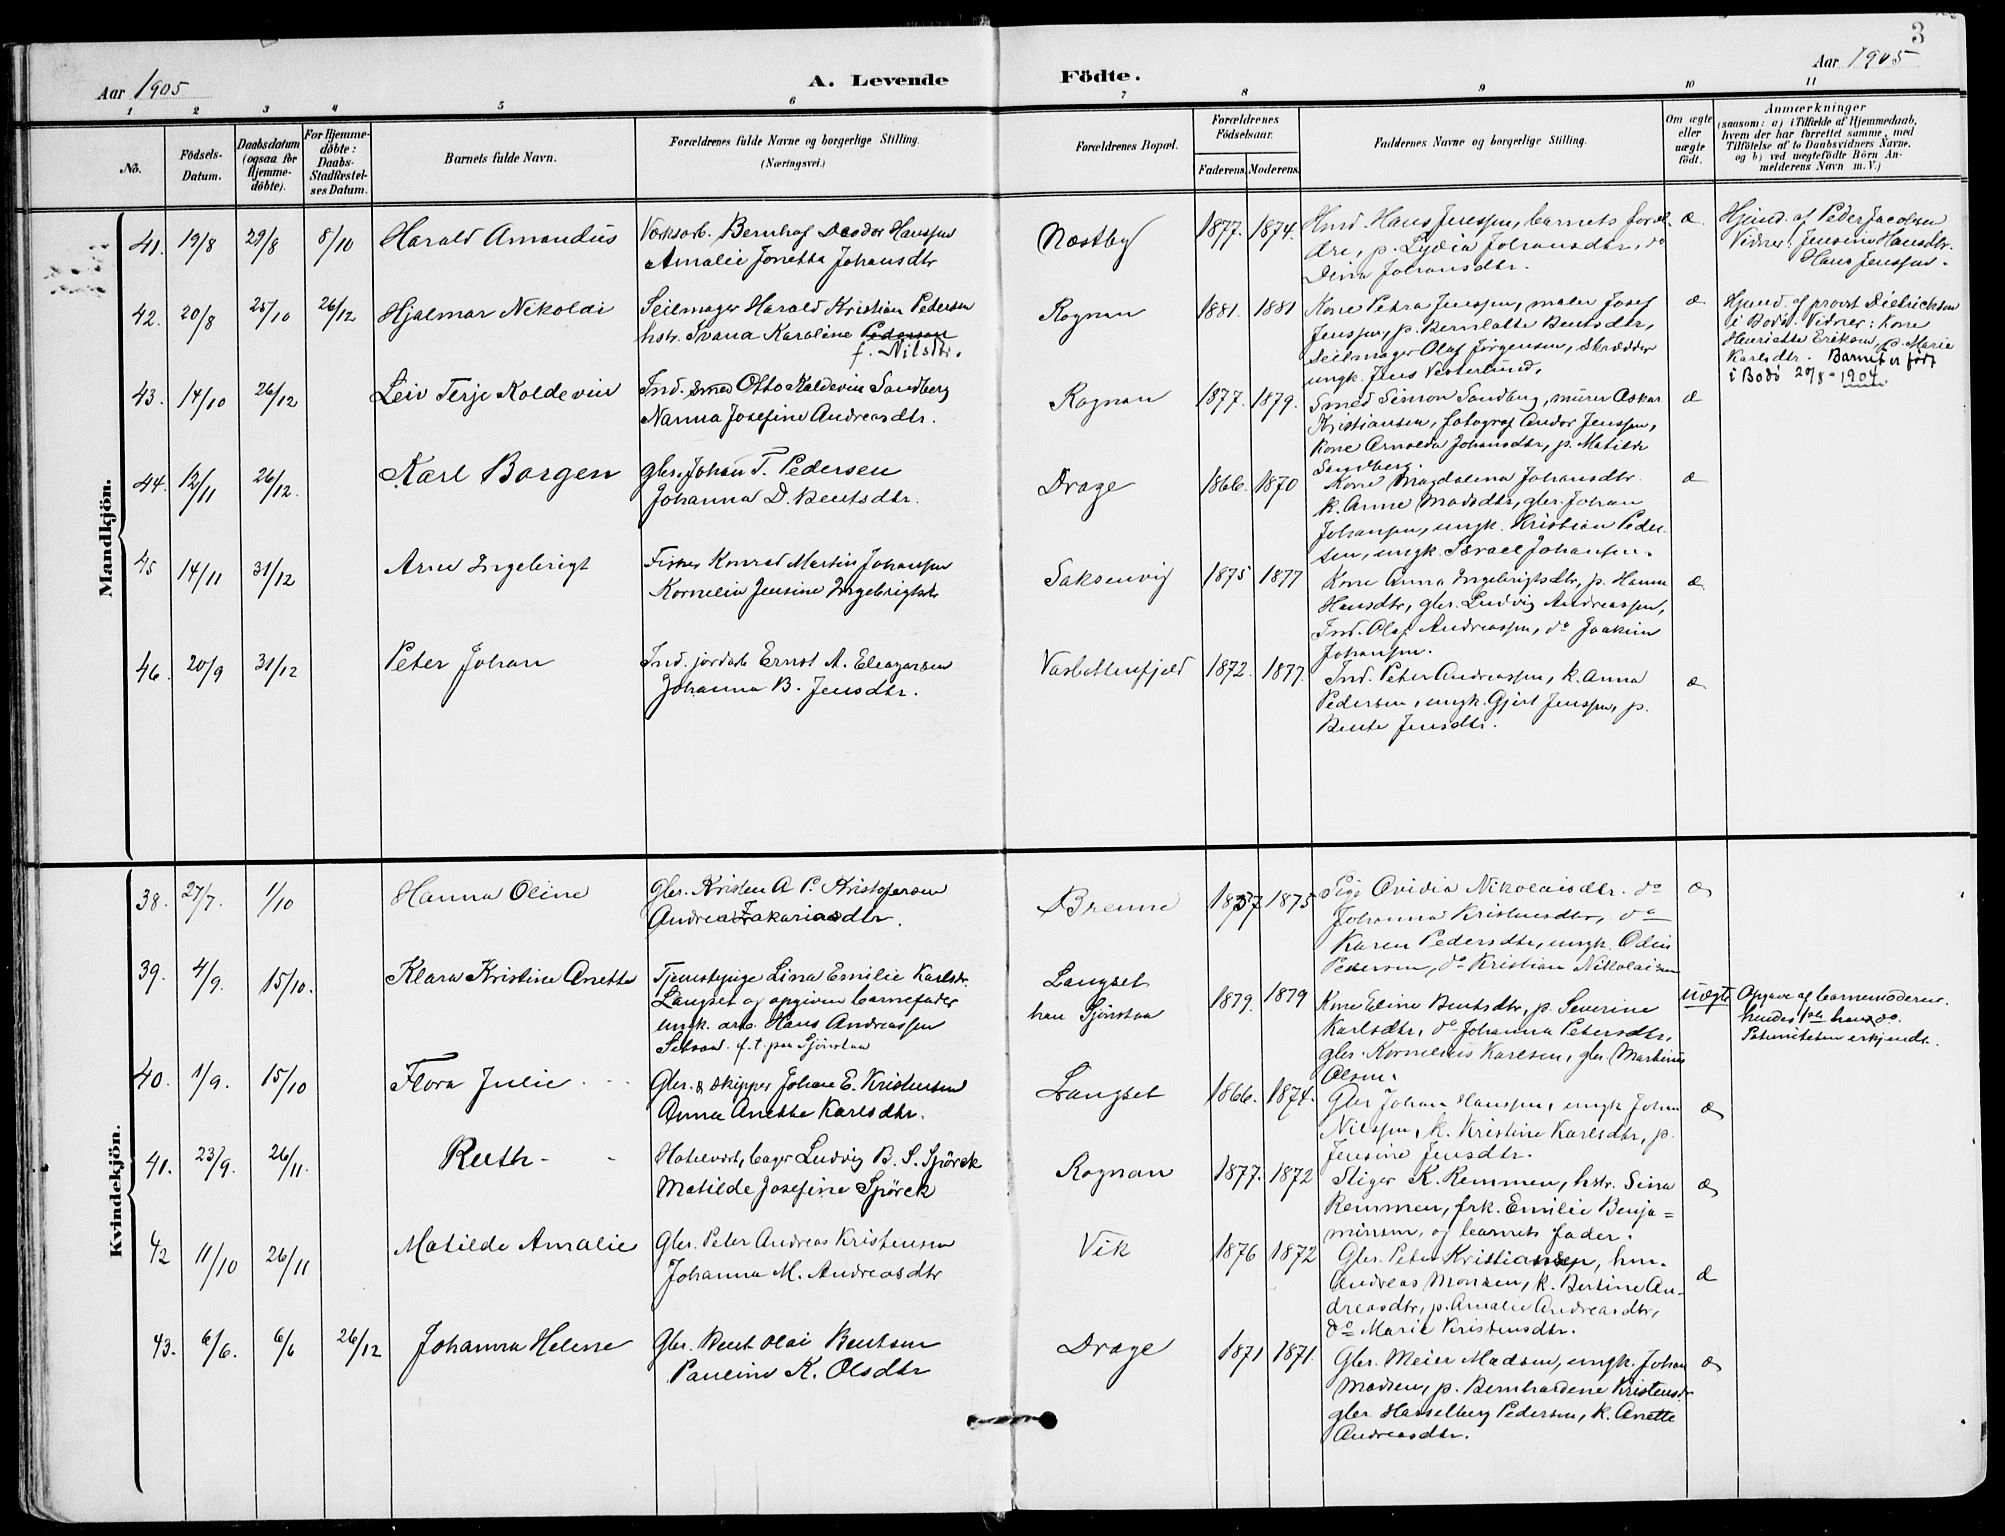 3
Aar 1905
A. Levende
Födte.
Aar 1905
1 2 3 4 5 6 7 8 9 10 11
No.
Födsels-Datum.
Daabsdatum (ogsaa for Hjemme-döbte).
For Hjemme-döbte: Daabs-Stadfæstel-ses Datum.
Barnets fulde Navn.
Forældrenes fulde Navne og borgerlige Stilling.
(Næringsvei.)
Forældrenes Bopæl.
Forældrenes Födselsaar.
Faderens. Moderens.
Faddernes Navne og borgerlige Stilling.
Om ægte eller uægte födt.
Anmærkninger
(saasom: a) i Tilfælde af Hjemmedaab,
hvem der har forrettet samme, med
Tilföielse af to Daabsvidners Navne,
og b) ved uægtefödte Börn An-
melderens Navn m. V.)
Mandkjön.
41. 19/8 29/8 8/10 Harald Amandus
Værksarb. Bernhof Deodor Hanssen
Amalie Jonetta Johansdtr
Næstby 1877. 1874.
Ind. Hans Jenssen, barnets foræl-
dre, p. Lydia Johansdtr, do
Dina Johansdtr.
æ.
Hjmd. af Peder Jacobsen
Vidner: Jensine Hansdtr.
Hans Jenssen.
42. 20/8 25/10 26/12 Hjalmar Nikolai
Seilmager Harald Kristian Pedersen
hstr. Ivana Karoline Pedersen
f. Nilsdtr.
Rognan 1881. 1881
Kone Petra Jenssen, maler Josef
Jenssen, p. Bernlatte Bentsdtr,
Seilmager Olaf Jørgensen, Skrædder
ungk. Jens Vesterlund,
æ
Hjmd. af provst Dietrichson
i Bodø. Vidner: Kone
Henriette Eriksen, p. Marie
Karlsdtr. Barnet er født
i Bodø 20/8 - 1904.
43. 14/10 26/12 Leiv Terje Koldevin
Ind. Smed Otto Koldevin Sandberg
Nanna Josefine Andreasdtr.
Rognan 1877. 1879.
Smed Simon Sandberg, murer Oskar
Kristiansen, fotograf Andor Jenssen,
Kone Arnolda Johansdtr, p. Matilde
Sandberg.
æ
44. 12/11 26/12. Karl Borgen
Gbr. Johan T. Pedersen
Johanna D. Bentsdtr.
Drage 1866. 1870
Kone Magdalena Johansdtr.
k. Anne Madsdtr, gbr. Johan
Johansen, ungk. Kristian Peder-
sen, ungk. Israel Johansen.
æ
45 14/11 31/12 Arne Ingebrigt
Fisker Konrad Martin Johanssen
Kornelia Jensine Ingebrigtsdtr
Saksenvig 1875 1877
Kone Anna Ingebrigtsdtr, p. Hanna
Hansdtr, gbr. Ludvig Andreassen,
Ind. Olaf Andreassen, do Joakim
Johansen.
æ.
46. 20/9 31/12 Peter Johan
Ind. jordarb Ernst A. Eleazarsen
Johanna B. Jensdtr.
Vasbottenfjeld 1872. 1877.
Ind. Peter Andreassen, k. Anna
Pedersen, ungk. Gjert Jenssen, p.
Bente Jensdtr.
æ
Kvindekjön.
38. 27/7. 1/10 Hanna Oline
Gbr. Kristen A P. Kristofersen
Andrea Zakariasdtr.
Brenne 1875
Pige Ovidia Nikolaisdtr. do
Johanna Kristensdtr, do
Karen Pedersdtr, ungk. Odin
Pedersen, do Kristian Nikolaisen
æ
39. 4/9. 15/10. Klara Kristine Anette
Tjenestepige Lina Emilie Karlsdtr.
Langset og opgiven barnefader
ungk. arb. Hans Andreassen
f. t. paa Sjönstaa
Langset
han Sjönstaa
1879. 1879
Kone Eline Bentsdtr, p. Severine
Karlsdtr, do Johanna Petersdtr,
gbr. Kornelius Karlsen, gbr. Martinus
Olsen.
uægte
Opgave af barnemoderen.
hendes
Paterniteten erkjendt.
40. 1/9. 15/10 Flora Julie
Gbr. & skipper Johan E. Kristensen
Anna Anette Karlsdtr.
Langset 1866. 1874.
Gbr Johan Hanssen, ungk Johan
Nilssen, k. Kristine Karlsdtr, p.
Jensine Jensdtr.
æ
41. 23/9. 26/11. Ruth
Hotelvært, bager Ludvig B. S. Spörck
Matilde Josefine Spörck
Rognan 1877. 1872
Stiger K. Remmen, hstr. Sina
Remmen, frk. Emilie Benja=
minsen, og barnets fader.
æ
42 11/10 26/11 Matilde Amalie
Gbr. Peter Andreas Kristensen
Johanna M. Andreasdtr
Vik 1876 1872
Gbr. Peter Kristiansen,
Andreas Monsen, k. Bertine An-
dreasdtr, p. Amalie Andreasdtr,
do Marie Kristensdtr.
æ
43. 6/6. 6/6 26/12 Johanna Helene
Gbr. Bent Olai Bentsen
Pauline K. Olsdtr
Drage 1871 1871.
Gbr. Meier Madsen, ungk. Johan
Madsen, p. Bernhardene Kristensdtr
gbr. Hasselberg Pedersen, k. Anette
Andreasdtr.
æ